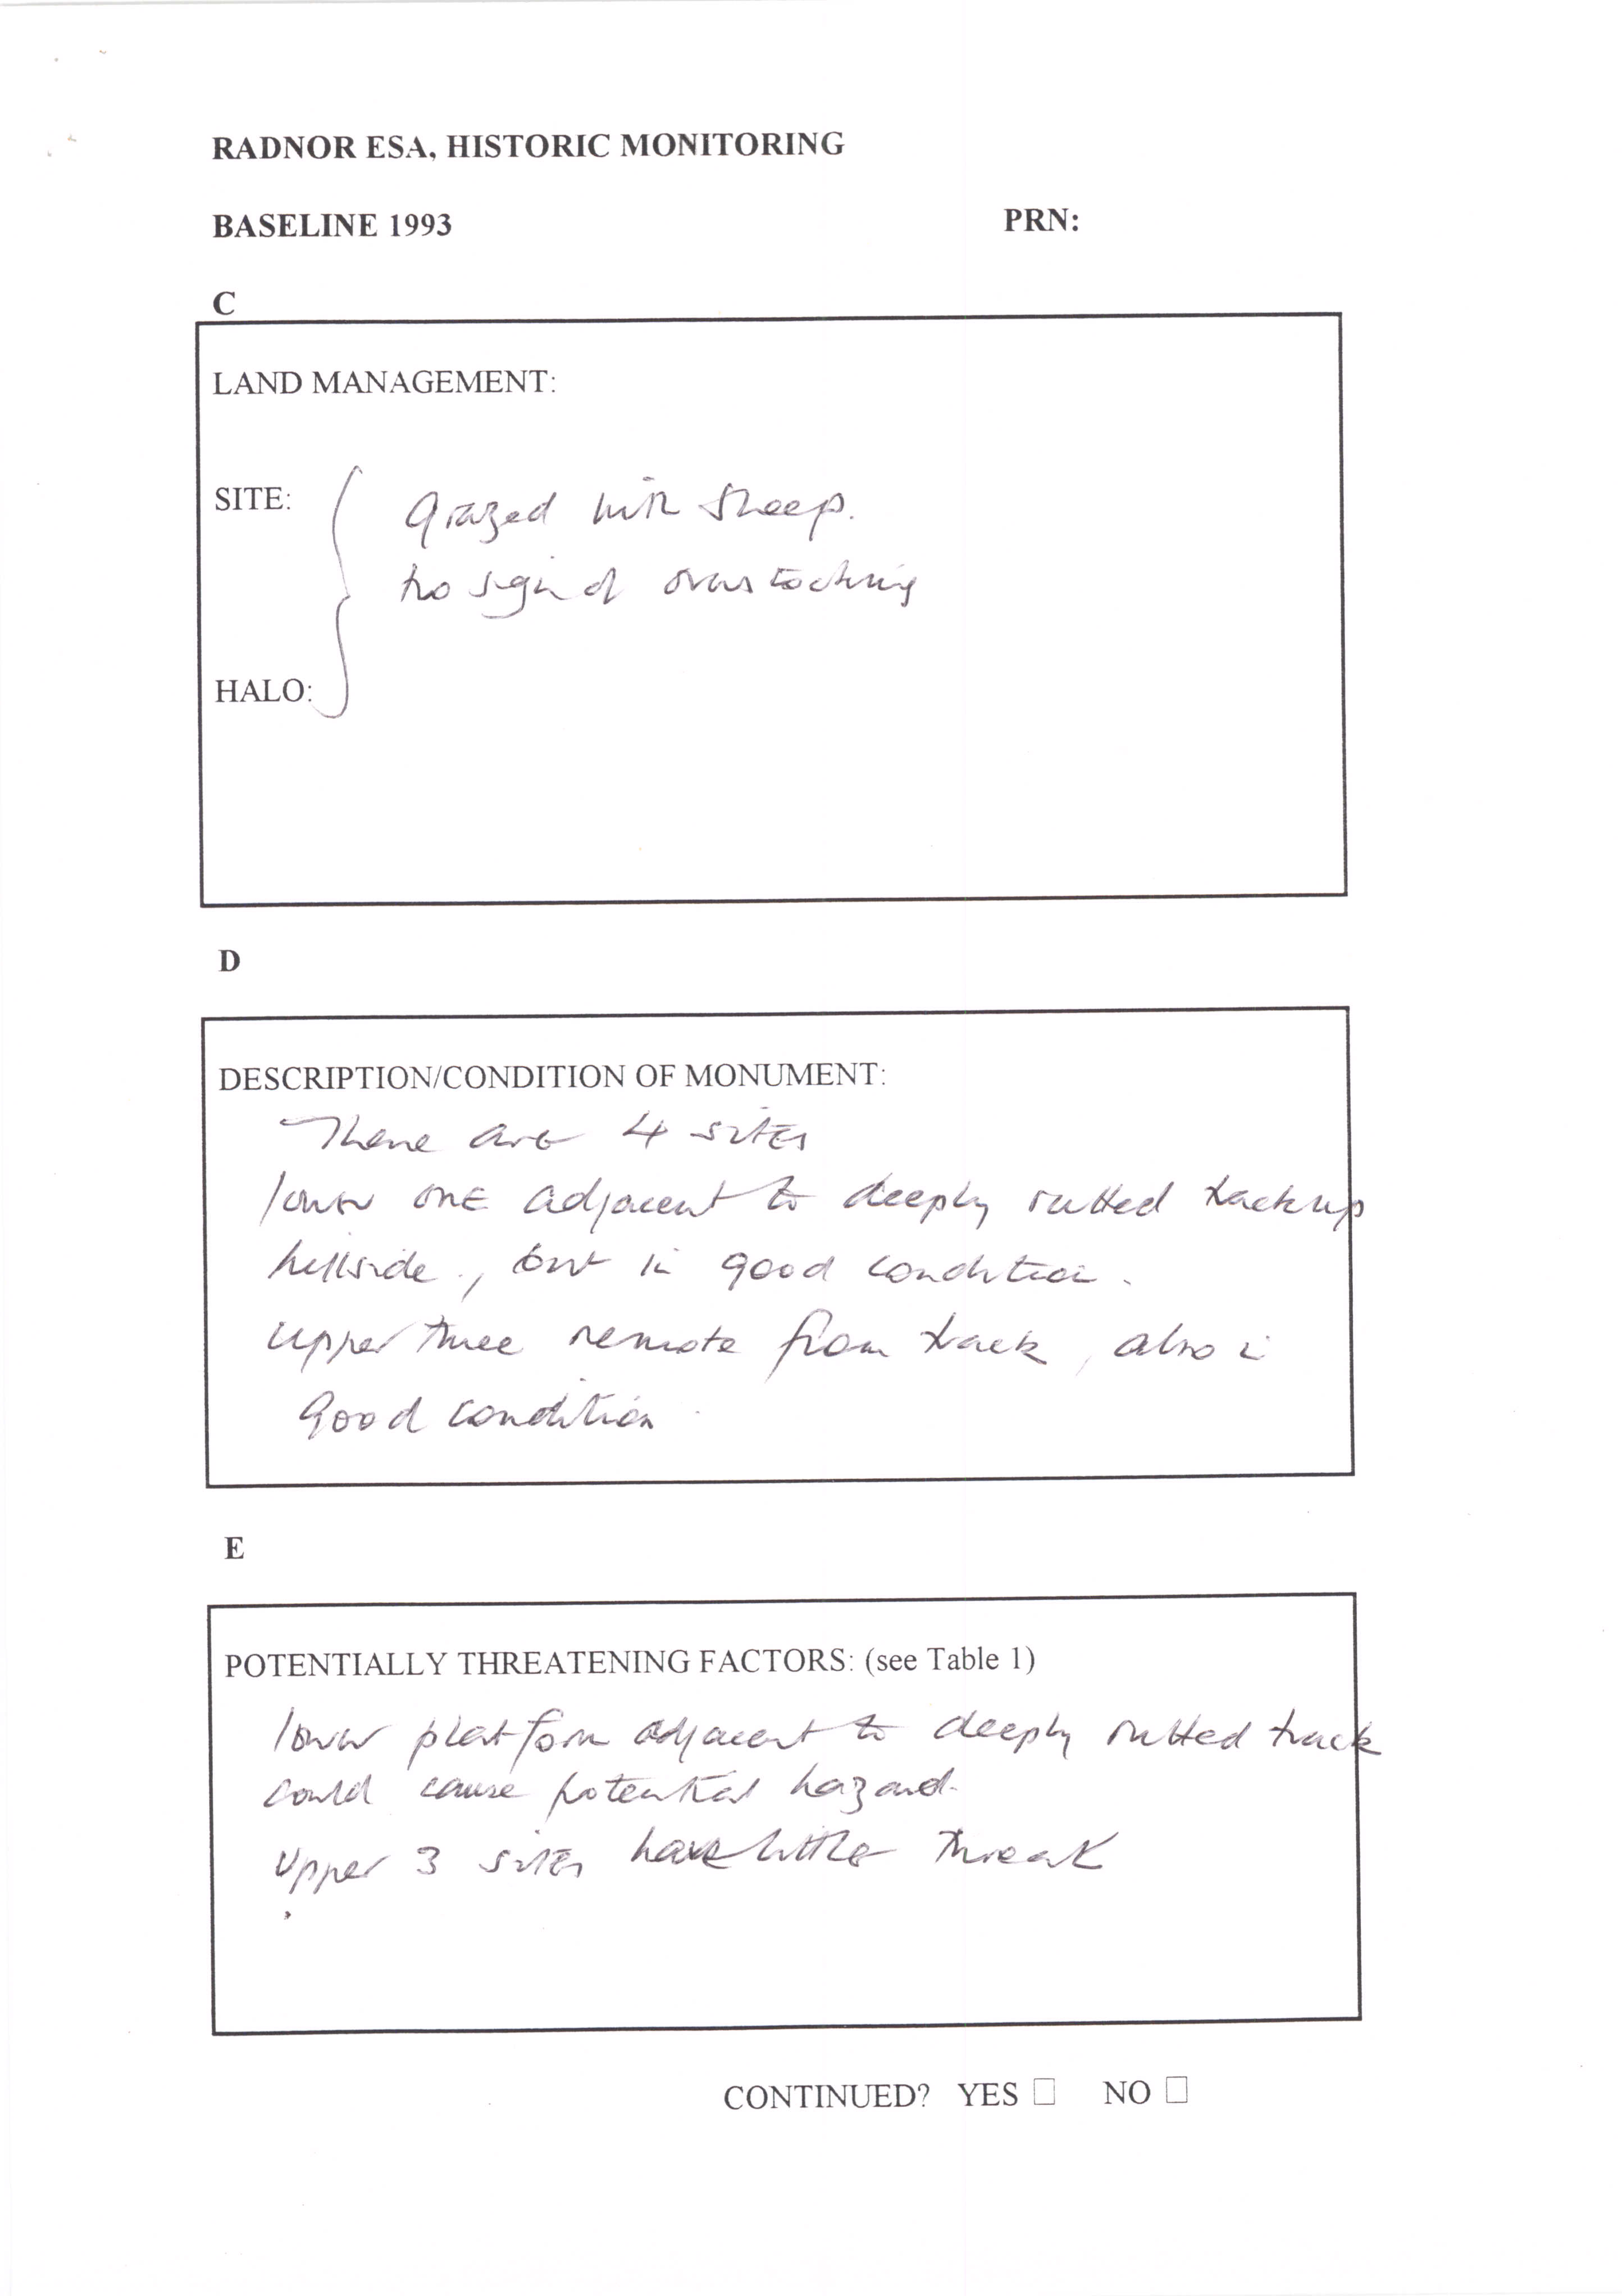 RADNOR ESA, HISTORIC MONITORING
BASELINE 1993 PRN:
C
LAND MANAGEMENT:
SITE: Grazed with sheep.
No sign of overstocking
HALO:
D
DESCRIPTION/CONDITION OF MONUMENT:
There are 4 sites
lower one adjacent to deeply rutted track up
hillside, but in good condition.
Upper three remote from track, also in
good condition
E
POTENTIALLY THREATENING FACTORS: (see Table 1)
lower platform adjacent to deeply rutted track
could cause potential hazard.
Upper 3 sites have little threat
CONTINUED? YES ☐ NO ☐